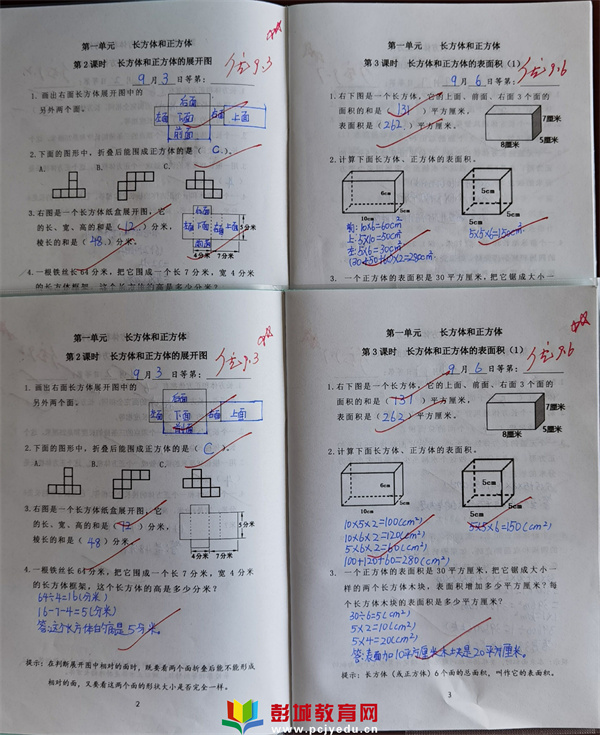 第一单元 长方体和正方体
第2课时 长方体和正方体的展开图
优9.3
9月3日等第:
1.画出右面长方体展开图中的
另外两个面。
后面
左面 下面 右面 上面
前面
2.下面的图形中,折叠后能围成正方体的是( C )。
A. B. C.
3.右图是一个长方体纸盒展开图,它
的长、宽、高的和是( 12 )分米,
棱长的和是( 48 )分米。
后面
左面 下面 右面 上面 3分米
前面
4分米 7分米
4.一根铁丝长64分米,把它围成一个长7分米,宽4分
的长方体框架,这个长方体的高是多少分米?
第一单元 长方体和正方体
第3课时 长方体和正方体的表面积(1)
优9.6
9月6日等第:
1.右下图是一个长方体,它的上面、前面、右面3个面的
面积的和是( 131 )平方厘米,
表面积是( 262 )平方厘米。
7厘米
8厘米 5厘米
2.计算下面长方体、正方体的表面积。
6cm 5cm
10cm 5cm 5cm 5cm
前:10×6=60cm²
上:5×10=50cm² 5×5×6=150cm²
左:5×6=30cm²
3. 一个正方体的表面积是30平方厘米,把它锯成大小一
第一单元 长方体和正方体
第2课时 长方体和正方体的展开图
优9.3
9月3日等第:
1.画出右面长方体展开图中的
另外两个面。
后面
左面 下面 右面 上面
前面
2.下面的图形中,折叠后能围成正方体的是( C )。
A. B. C.
3.右图是一个长方体纸盒展开图,它
的长、宽、高的和是( 12 )分米,
棱长的和是( 48 )分米。
3分米
4分米 7分米
4.一根铁丝长64分米,把它围成一个长7分米,宽4分米
的长方体框架,这个长方体的高是多少分米?
64÷4=16(分米)
16-7-4=5(分米)
答:这个长方体的高是5分米。
提示:在判断展开图中相对的面时,既要看两个面折叠后能不能形成
相对的面,又要看这两个面的形状大小是否完全一样。
2
第一单元 长方体和正方体
第3课时 长方体和正方体的表面积(1)
优9.6
9月6日等第:
1.右下图是一个长方体,它的上面、前面、右面3个面的
面积的和是( 131 )平方厘米,
表面积是( 262 )平方厘米。
7厘米
8厘米 5厘米
2.计算下面长方体、正方体的表面积。
6cm 5cm
10cm 5cm 5cm 5cm
10×5×2=100(cm²) 5×5×6=150(cm²)
10×6×2=120(cm²)
5×6×2=60(cm²)
100+120+60=280(cm²)
3. 一个正方体的表面积是30平方厘米,把它锯成大小一
样的两个长方体木块,表面积增加多少平方厘米?每
个长方体木块的表面积是多少平方厘米?
30÷6=5(cm²)
5×2=10(cm²)
5×4=20(cm²)
答:表面加10平方厘米,木块是20平方厘米。
提示:长方体(或正方体)6个面的总面积,叫作它的表面积。
3
彭城教育网
www.pcjyedu.cn